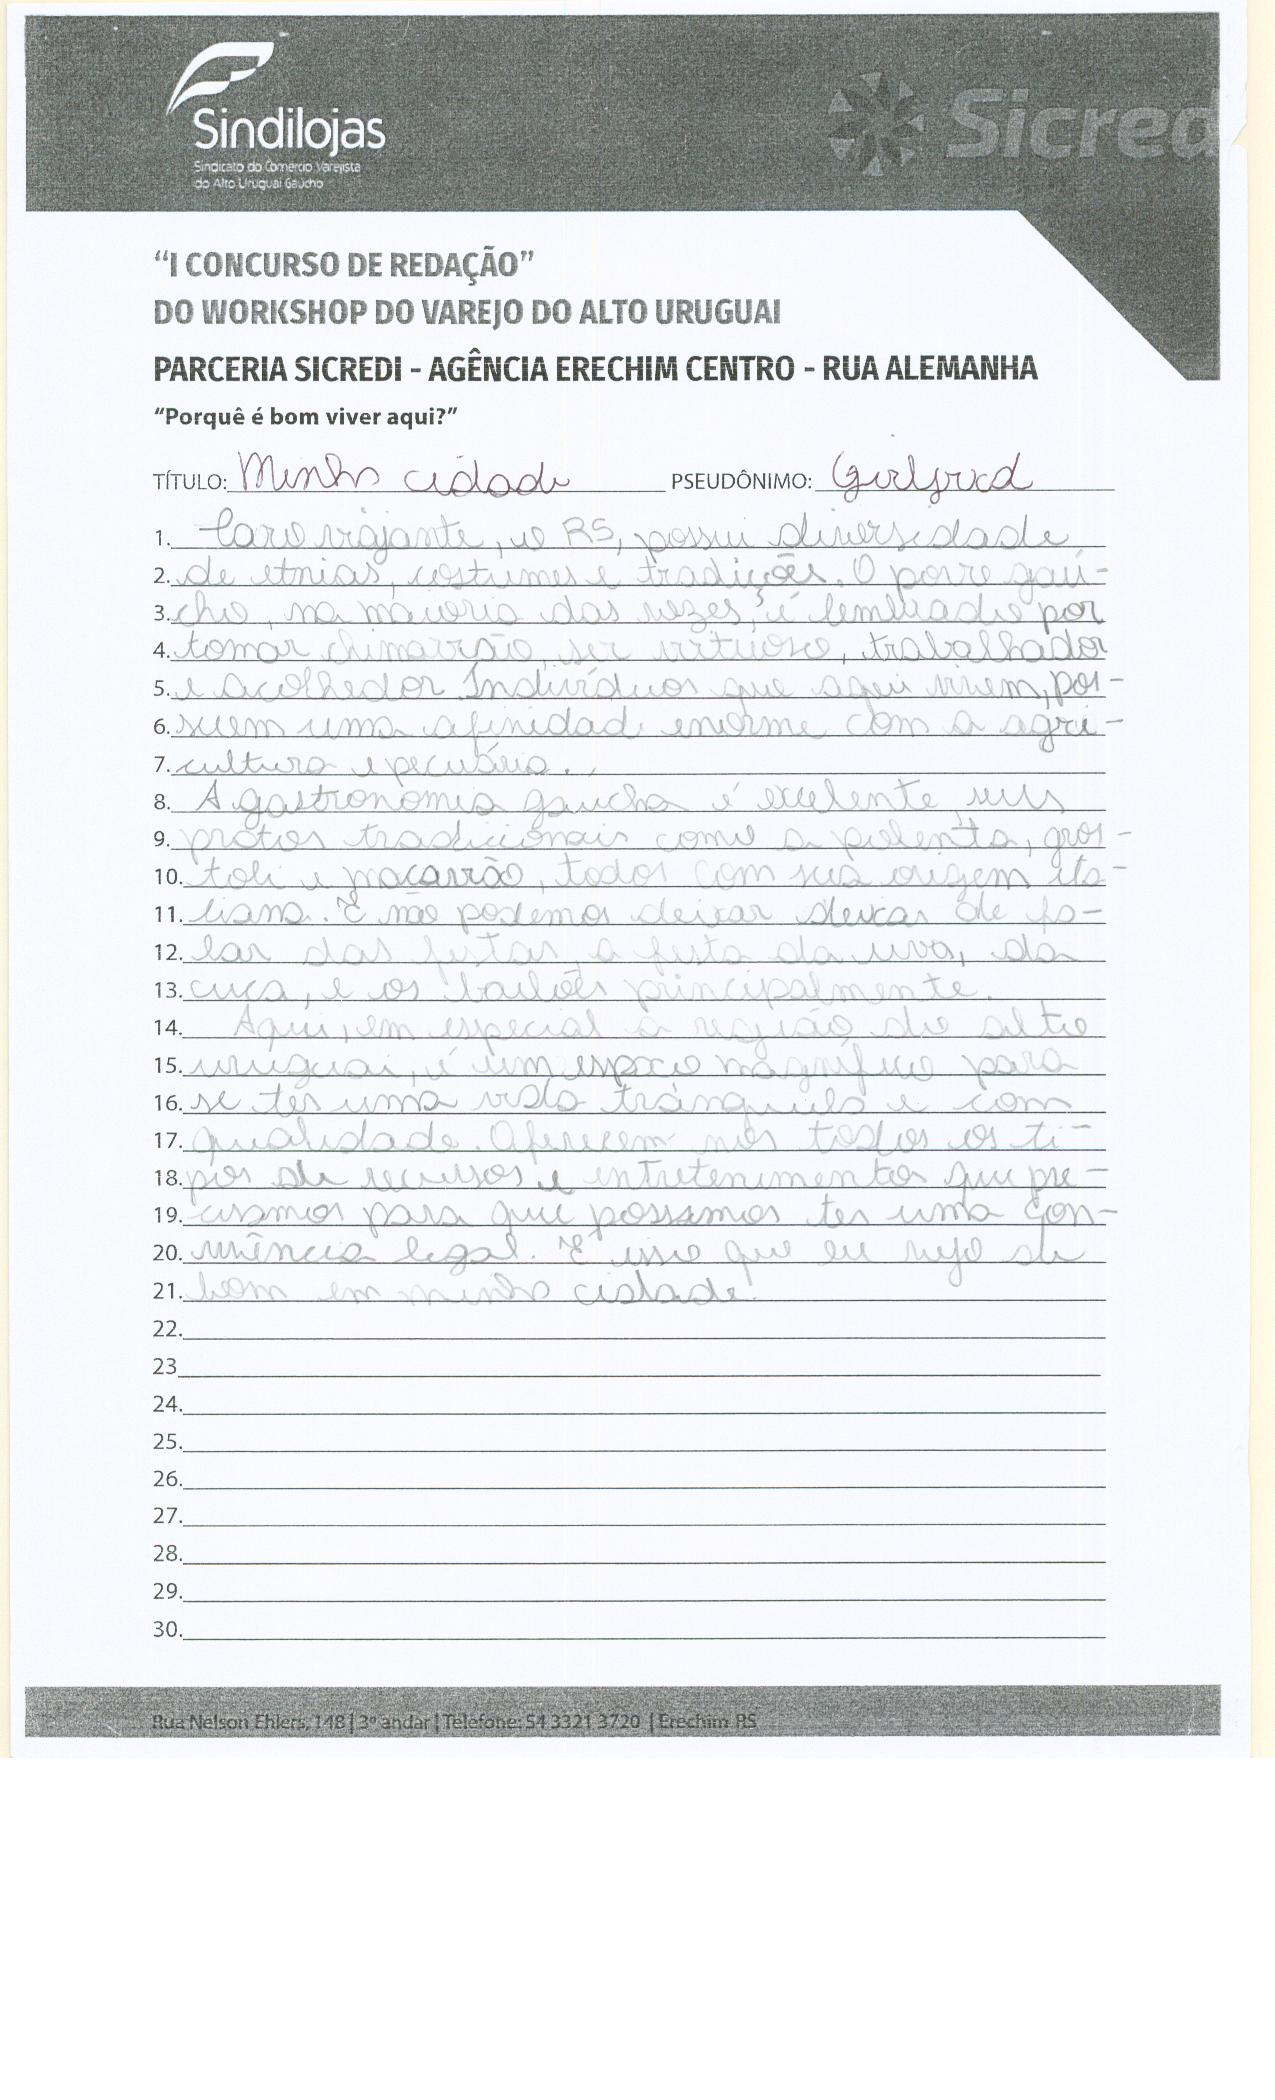 Sindilojas
Sindicato do Comércio Varejista
do Alto Uruguai Gaúcho
Sicred
“I CONCURSO DE REDAÇÃO”
DO WORKSHOP DO VAREJO DO ALTO URUGUAI
PARCERIA SICREDI - AGÊNCIA ERECHIM CENTRO - RUA ALEMANHA
“Porquê é bom viver aqui?”
TÍTULO: Minha cidade PSEUDÔNIMO:
1. Caro viajante, o RS, possui diversidade
2. de etnias, costumes e tradições. O povo gaú-
3. cho, na maioria das vezes, é lembrado por
4. tomar chimarrão, ser virtuoso, trabalhador
5. e acolhedor. Indivíduos que aqui vivem, pos-
6. suem uma afinidade enorme com a agri-
7. cultura e pecuária.
8. A gastronomia gaucha é excelente, seus
9. pratos tradicionais como a polenta, gros-
10. toli e macarrão, todos com sua origem ita-
11. liana. E não podemos deixar deixar de fa-
12. lar das festas, a festa da uva, da
13. cuca, e os bailões principalmente.
14. Aqui, em especial a região do alto
15. uruguai, é um espaço magnífico para
16. se ter uma vida tranquila e com
17. qualidade. Oferecem nos todos os ti-
18. pos de recursos e entretenimentos que pre-
19. cisamos para que possamos ter uma con-
20. vivência legal. É isso que eu vejo de
21. bom em minha cidade!
22.
23
24.
25.
26.
27.
28.
29.
30.
Rua Nelson Ehlers, 148 | 3º andar | Telefone: 54 3321 3720 | Erechim RS